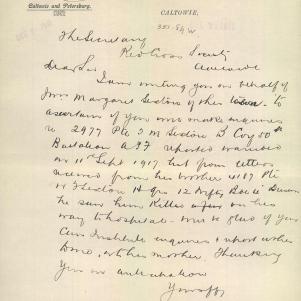 Caltowie and Petersburg.
CALTOWIE,
The Secretary
Red Cross Society
Adelaide
Dear Sir
I am writing you on behalf of
Mrs Margaret Sexton of this to
ascertain if you can make enquiries
re 2977 Pte J M Sexton B Coy 50th
Battalion AIF reported wounded
on 11 Sept 1917 but from letters
received from his brother 4117 Pte
H Sexton H Qrs 12
he saw him killed on his
way to hospital will be glad if you
can institute enquiries & report
his mother. Thanking
you in anticipation
Yours